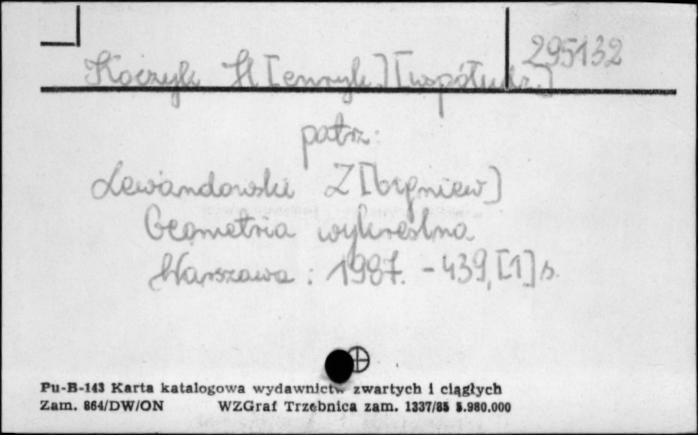 295132
Koczyk H[enryk] [współudz.]
patrz:
Lewandowski Z[bigniew]
Geometria wykreślna
Warszawa : 1987. - 439, [1] s.
Pu-B-143 Karta katalogowa wydawnictw zwartych i ciągłych
Zam. 864/DW/ON WZGraf Trzebnica zam. 1337/85 5.980.000